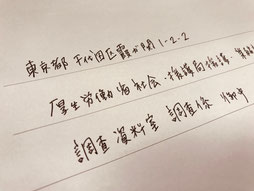 東京都千代田区霞が関1-2-2
厚生労働省社会・援護局援護・業務課
調査資料室 調査係 御中